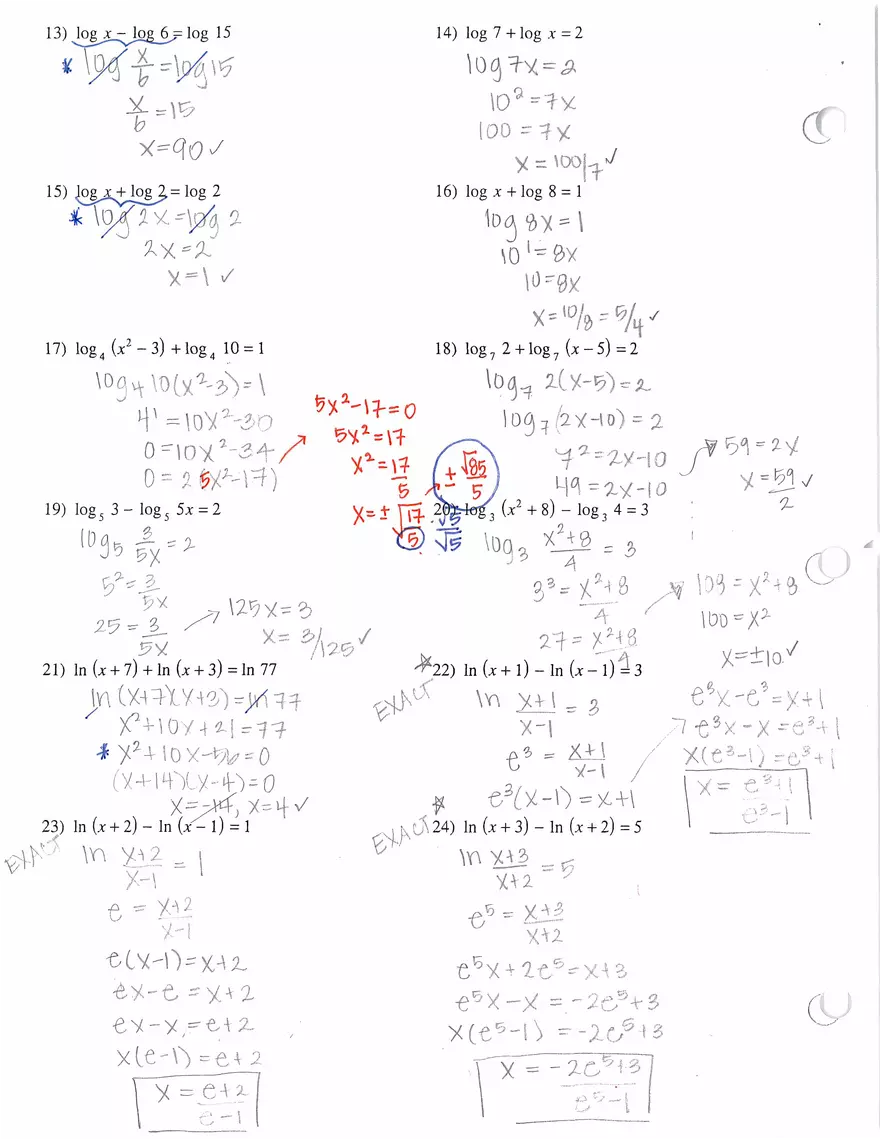 13) log x − log 6 = log 15
* log x/6 = log 15
x/6 = 15
x = 90 ✓
14) log 7 + log x = 2
log 7x = 2
10² = 7x
100 = 7x
x = 100/7 ✓
15) log x + log 2 = log 2
* log 2x = log 2
2x = 2
x = 1 ✓
16) log x + log 8 = 1
log 8x = 1
10¹ = 8x
10 = 8x
x = 10/8 = 5/4 ✓
17) log₄ (x² − 3) + log₄ 10 = 1
log₄ 10(x²-3) = 1
4¹ = 10x²-30
0 = 10x²-34
0 = 2(5x²-17)
5x²-17=0
5x²=17
x² = 17/5
x = ± √17/5 √5/√5
± √85/5
18) log₇ 2 + log₇ (x − 5) = 2
log₇ 2(x-5) = 2
log₇ (2x-10) = 2
7² = 2x-10
49 = 2x-10
59 = 2x
x = 59/2 ✓
19) log₅ 3 − log₅ 5x = 2
log₅ 3/5x = 2
5² = 3/5x
25 = 3/5x
125x = 3
x = 3/125 ✓
20) log₃ (x² + 8) − log₃ 4 = 3
log₃ x²+8/4 = 3
3³ = x²+8/4
27 = x²+8/4
108 = x²+8
100 = x²
x = ±10 ✓
21) ln (x + 7) + ln (x + 3) = ln 77
ln (x+7)(x+3) = ln 77
x²+10x+21=77
* x²+10x-56=0
(x+14)(x-4)=0
x=-14, x=4 ✓
EXACT
22) ln (x + 1) − ln (x − 1) = 3
ln x+1/x-1 = 3
e³ = x+1/x-1
e³(x-1) = x+1
e³x-e³ = x+1
e³x-x = e³+1
x(e³-1) = e³+1
x = e³+1/e³-1
EXACT
23) ln (x + 2) − ln (x − 1) = 1
ln x+2/x-1 = 1
e = x+2/x-1
e(x-1) = x+2
ex-e = x+2
ex-x = e+2
x(e-1) = e+2
x = e+2/e-1
EXACT
24) ln (x + 3) − ln (x + 2) = 5
ln x+3/x+2 = 5
e⁵ = x+3/x+2
e⁵x+2e⁵ = x+3
e⁵x-x = -2e⁵+3
x(e⁵-1) = -2e⁵+3
x = -2e⁵+3/e⁵-1